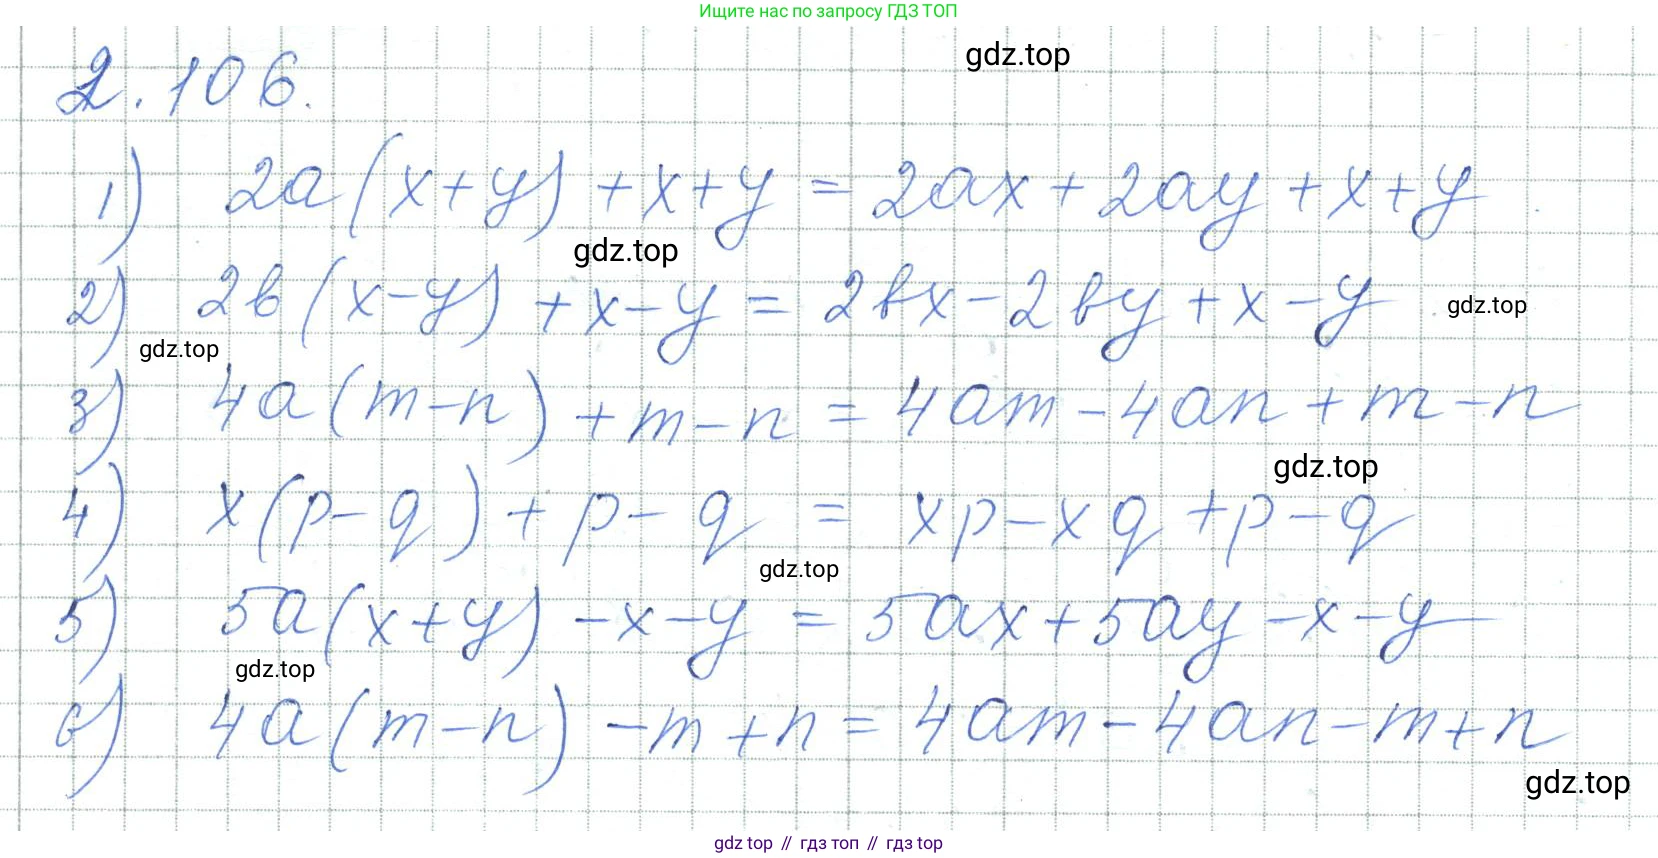 Ищите нас по запросу ГДЗ ТОП
gdz.top
2.106.
1) 2a(x+y)+x+y = 2ax+2ay+x+y
gdz.top
2) 2b(x-y)+x-y = 2bx-2by+x-y
gdz.top
gdz.top
3) 4a(m-n)+m-n = 4am-4an+m-n
gdz.top
4) x(p-q)+p-q = xp-xq+p-q
gdz.top
5) 5a(x+y)-x-y = 5ax+5ay-x-y
gdz.top
6) 4a(m-n)-m+n = 4am-4an-m+n
gdz.top
gdz top // гдз топ // гдз top